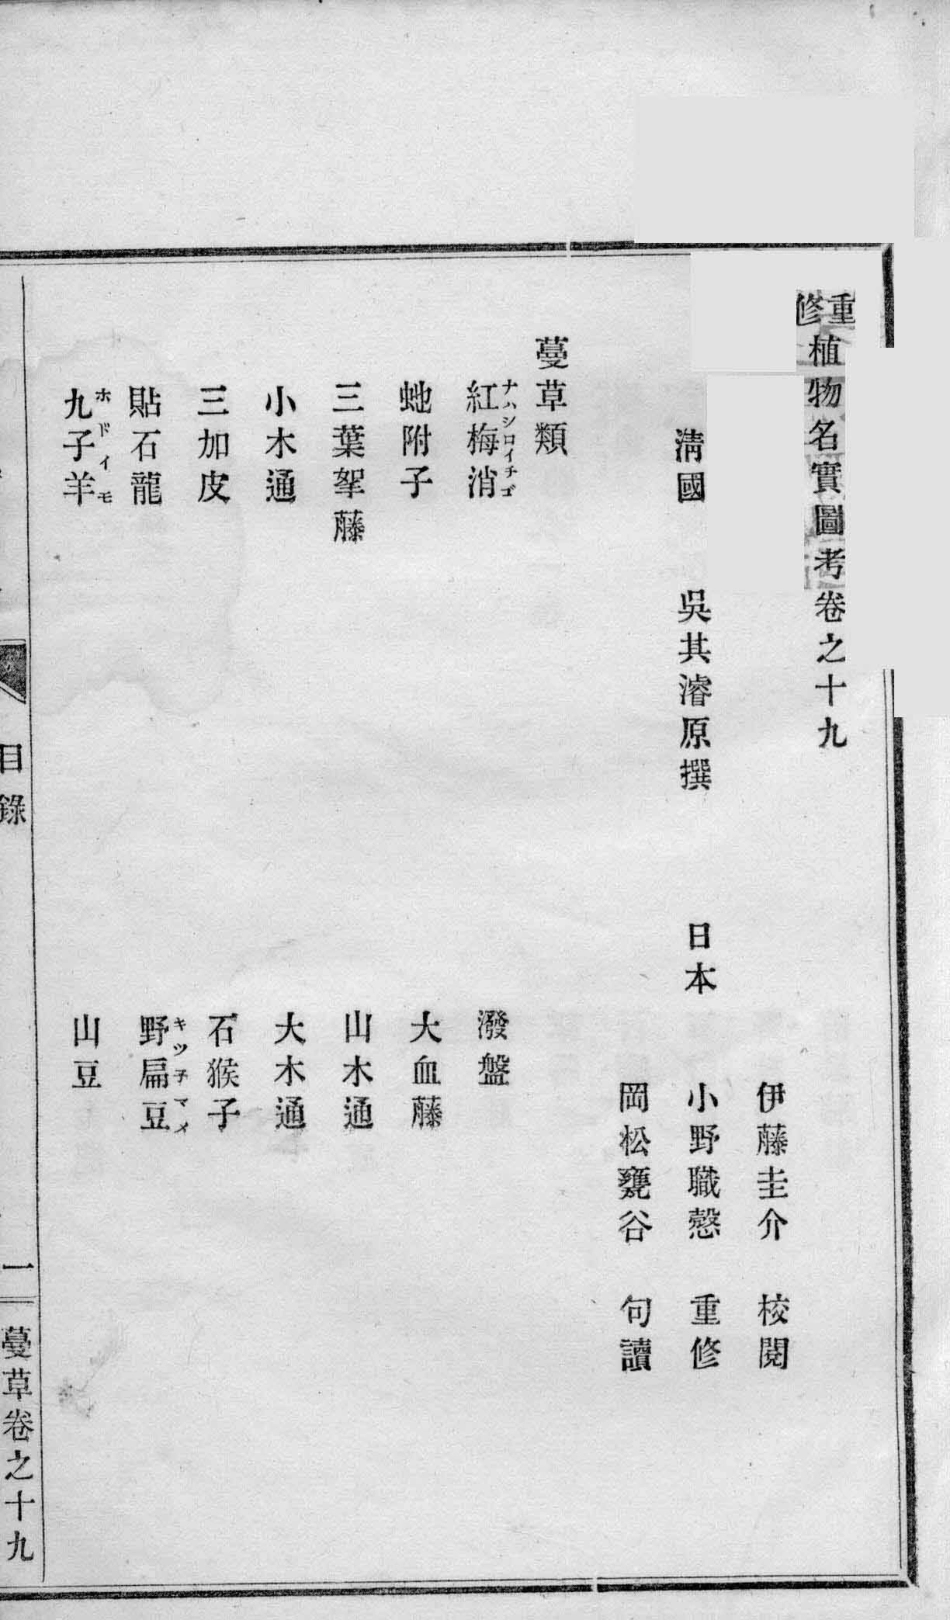 重修植物名實圖考卷之十九
伊藤圭介 校閱
淸國 吳其濬原撰 日本 小野職愨 重修
岡松甕谷 句讀
蔓草類
ナハシロイチゴ
紅梅消 潑盤
虵附子 大血藤
三葉挐藤 山木通
小木通 大木通
三加皮 石猴子
キツ子マメ
貼石龍 野扁豆
ホドイモ
九子羊 山豆
目錄 一 蔓草卷之十九